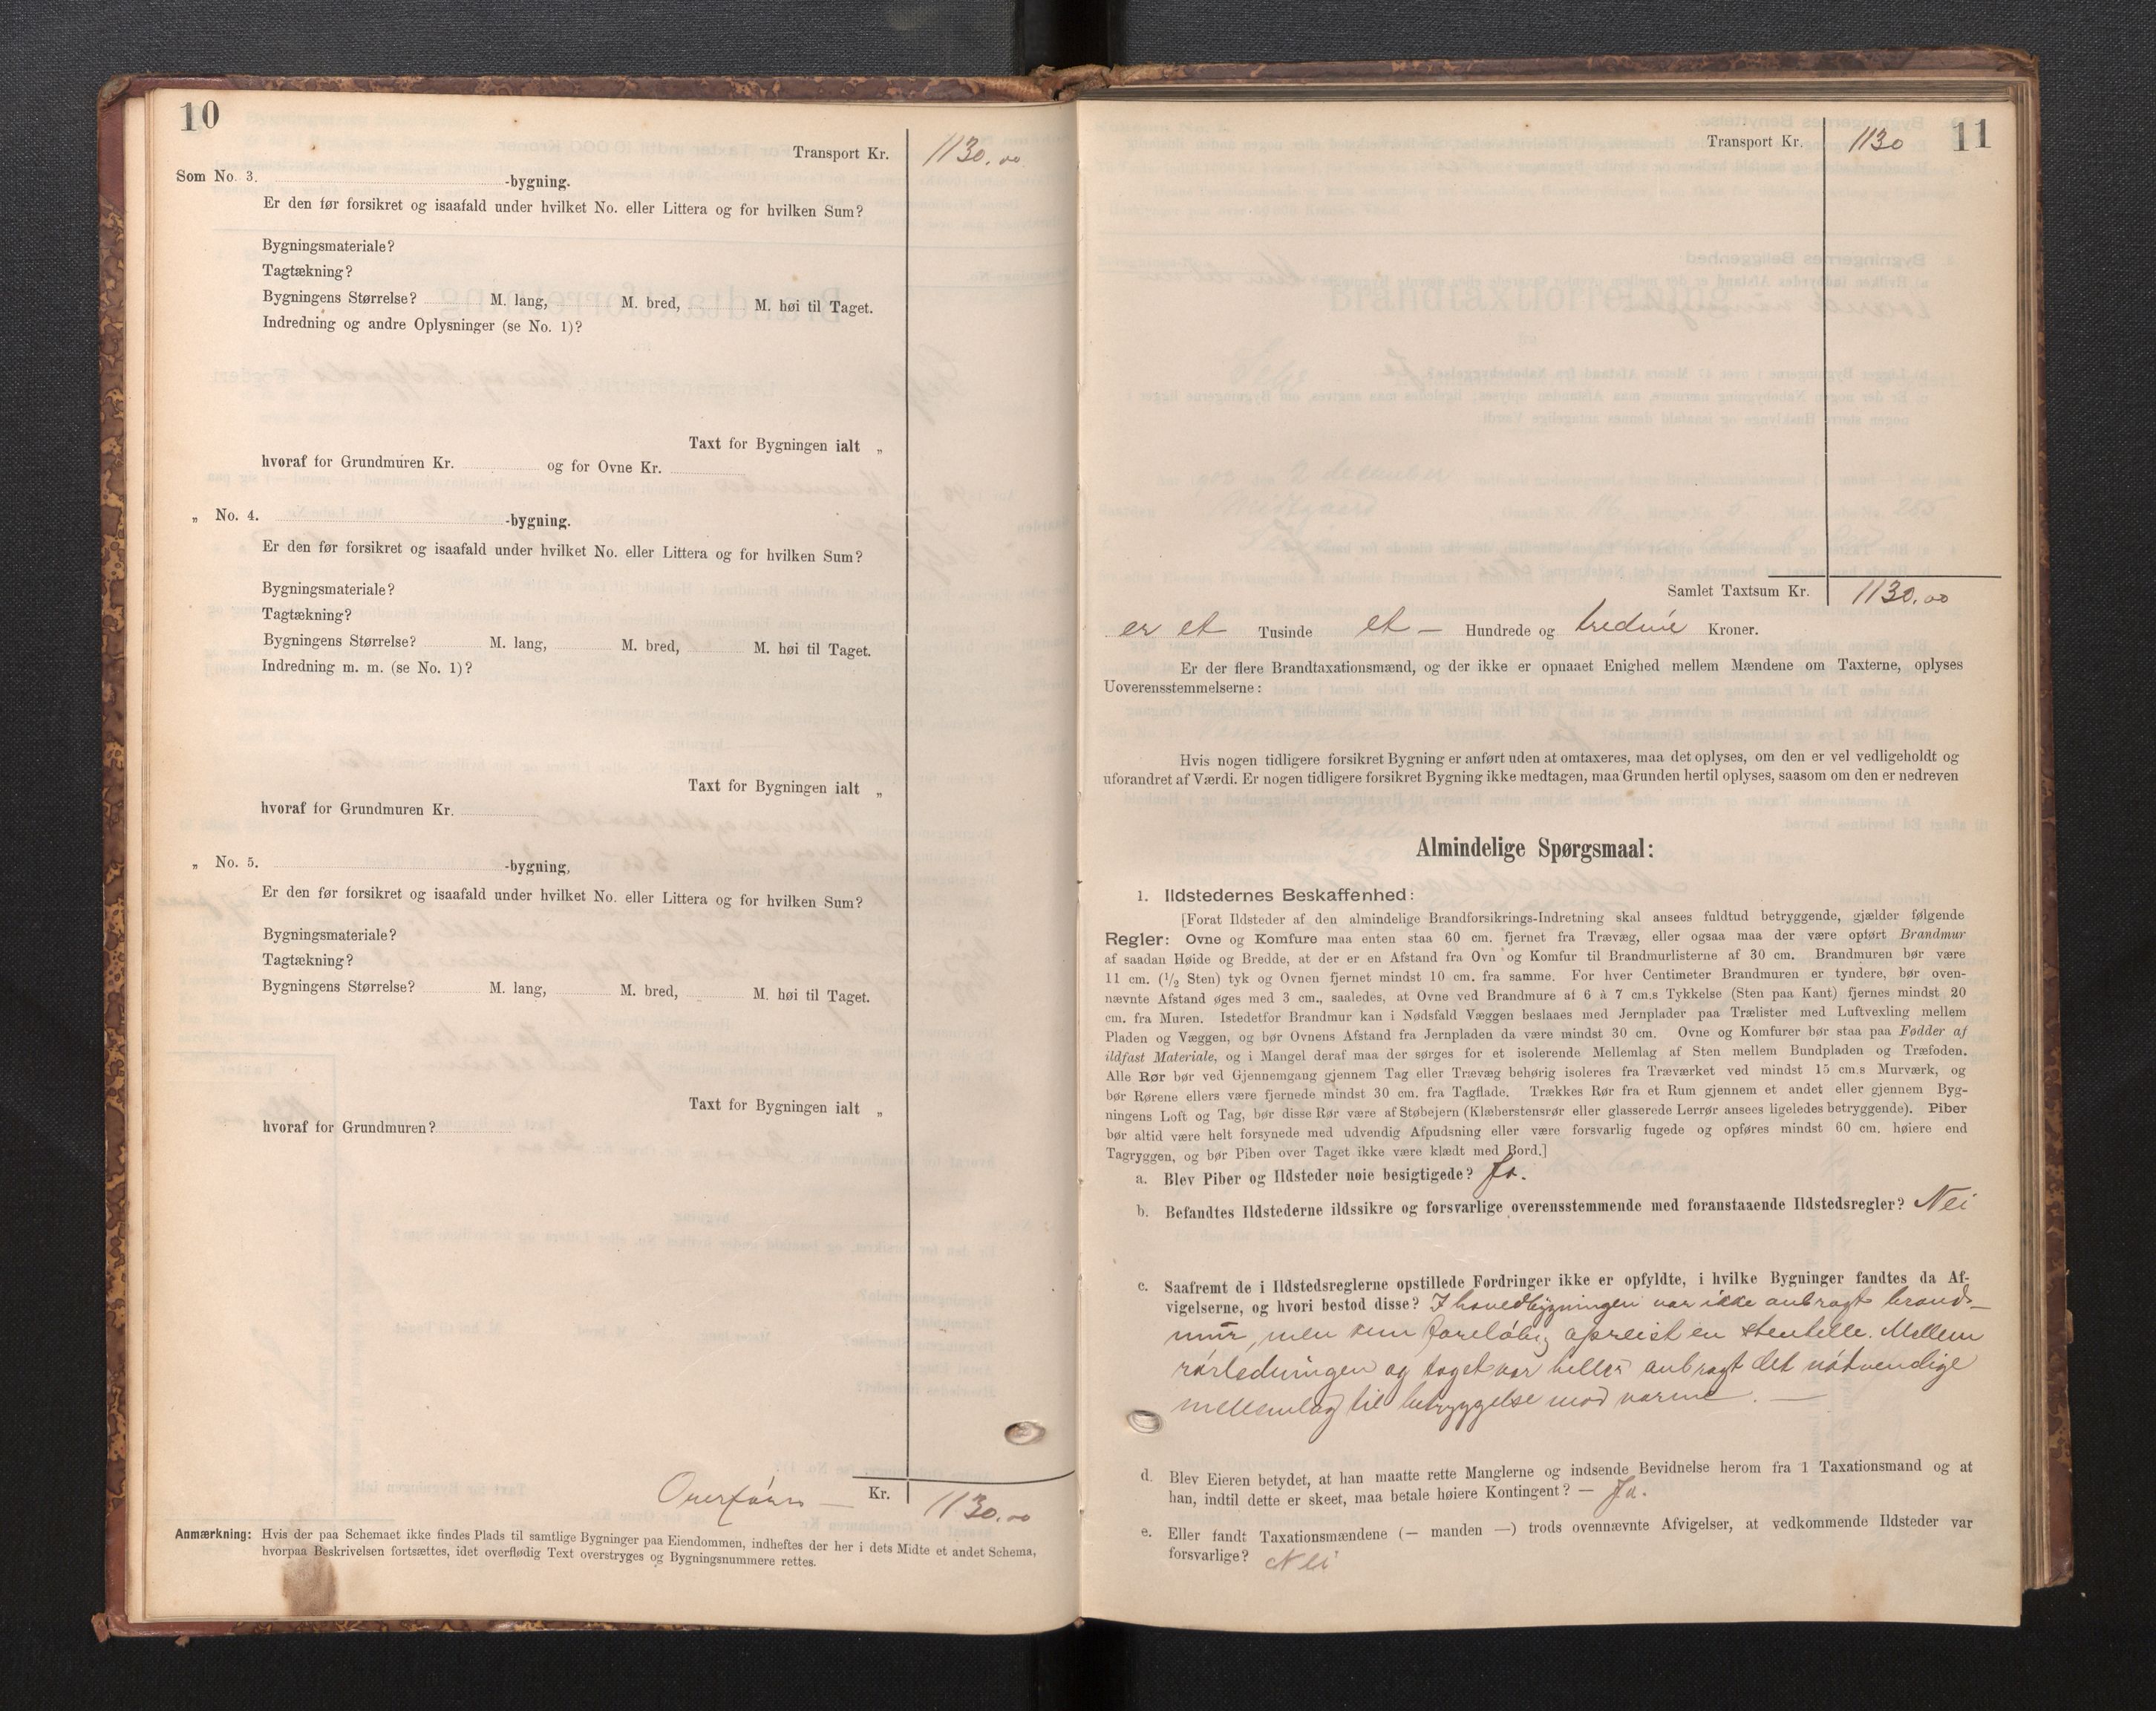 10
Transport Kr. 1130.00
Som No. 3. -bygning.
Er den før forsikret og isaafald under hvilket No. eller Littera og for hvilken Sum?
Bygningsmateriale?
Tagtækning?
Bygningens Størrelse? M. lang, M. bred, M. høi til Taget.
Indredning og andre Oplysninger (se No. 1)?
Taxt for Bygningen ialt „
hvoraf for Grundmuren Kr. og for Ovne Kr.
„ No. 4. -bygning.
Er den før forsikret og isaafald under hvilket No. eller Littera og for hvilken Sum?
Bygningsmateriale?
Tagtækning?
Bygningens Størrelse? M. lang, M. bred, M. høi til Taget.
Indredning m. m. (se No. 1)?
Taxt for Bygningen ialt „
hvoraf for Grundmuren Kr.
„ No. 5. -bygning,
Er den før forsikret og isaafald under hvilket No. eller Littera og for hvilken Sum?
Bygningsmateriale?
Tagtækning?
Bygningens Størrelse? M. lang, M. bred, M. høi til Taget.
Taxt for Bygningen ialt „
hvoraf for Grundmuren?
Overføres — Kr. 1130.00
Anmærkning: Hvis der paa Schemaet ikke findes Plads til samtlige Bygninger paa Eiendommen, indheftes der her i dets Midte et andet Schema,
hvorpaa Beskrivelsen fortsættes, idet overflødig Text overstryges og Bygningsnummere rettes.
11
Transport Kr. 1130
Samlet Taxtsum Kr. 1130.00
er et Tusinde et — Hundrede og tredive Kroner.
Er der flere Brandtaxationsmænd, og der ikke er opnaaet Enighed mellem Mændene om Taxterne, oplyses
Uoverensstemmelserne:
Hvis nogen tidligere forsikret Bygning er anført uden at omtaxeres, maa det oplyses, om den er vel vedligeholdt og
uforandret af Værdi. Er nogen tidligere forsikret Bygning ikke medtagen, maa Grunden hertil oplyses, saasom om den er nedreven
Almindelige Spørgsmaal:
1. Ildstedernes Beskaffenhed:
[Forat Ildsteder af den almindelige Brandforsikrings-Indretning skal ansees fuldtud betryggende, gjælder følgende
Regler: Ovne og Komfure maa enten staa 60 cm. fjernet fra Trævæg, eller ogsaa maa der være opført Brandmur
af saadan Høide og Bredde, at der er en Afstand fra Ovn og Komfur til Brandmurlisterne af 30 cm. Brandmuren bør være
11 cm. (1/2 Sten) tyk og Ovnen fjernet mindst 10 cm. fra samme. For hver Centimeter Brandmuren er tyndere, bør oven-
nævnte Afstand øges med 3 cm., saaledes, at Ovne ved Brandmure af 6 à 7 cm.s Tykkelse (Sten paa Kant) fjernes mindst 20
cm. fra Muren. Istedetfor Brandmur kan i Nødsfald Væggen beslaaes med Jernplader paa Trælister med Luftvexling mellem
Pladen og Væggen, og bør Ovnens Afstand fra Jernpladen da være mindst 30 cm. Ovne og Komfurer bør staa paa Fødder af
ildfast Materiale, og i Mangel deraf maa der sørges for et isolerende Mellemlag af Sten mellem Bundpladen og Træfoden.
Alle Rør bør ved Gjennemgang gjennem Tag eller Trævæg behørig isoleres fra Træværket ved mindst 15 cm.s Murværk, og
bør Rørene ellers være fjernede mindst 30 cm. fra Tagflade. Trækkes Rør fra et Rum gjennem et andet eller gjennem Byg-
ningens Loft og Tag, bør disse Rør være af Støbejern (Klæberstensrør eller glasserede Lerrør ansees ligeledes betryggende). Piber
bør altid være helt forsynede med udvendig Afpudsning eller være forsvarlig fugede og opføres mindst 60 cm. høiere end
Tagryggen, og bør Piben over Taget ikke være klædt med Bord.]
a. Blev Piber og Ildsteder nøie besigtigede? Ja.
b. Befandtes Ildstederne ildssikre og forsvarlige overensstemmende med foranstaaende Ildstedsregler? Nei
c. Saafremt de i Ildstedsreglerne opstillede Fordringer ikke er opfyldte, i hvilke Bygninger fandtes da Af-
vigelserne, og hvori bestod disse? I hovedbygningen var ikke anbragt brand-
mur, men kun foreløbig opreist en stenhelle. Mellem
rørledningen og taget var heller anbragt det nødvendige
mellemlag til betryggelse mod varme. —
d. Blev Eieren betydet, at han maatte rette Manglerne og indsende Bevidnelse herom fra 1 Taxationsmand og at
han, indtil dette er skeet, maa betale høiere Kontingent? — Ja.
e. Eller fandt Taxationsmændene (— manden —) trods ovennævnte Afvigelser, at vedkommende Ildsteder var
forsvarlige? Nei